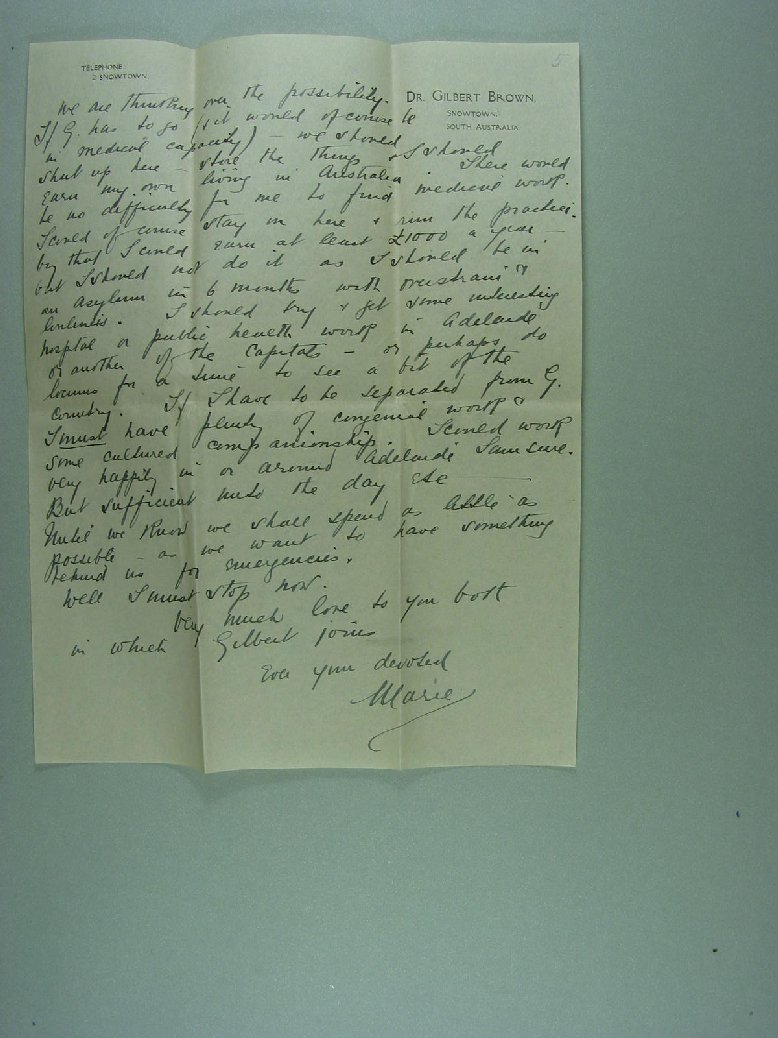 5
TELEPHONE
2 SNOWTOWN.
DR. GILBERT BROWN.
SNOWTOWN.
SOUTH AUSTRALIA
We are thinking over the possibility.
If G. has to go (it would of course be
in medical capacity) – we should
shut up here – store the things & I should
earn my own living in Australia. There would
be no difficulty for me to find medical work.
I could of course stay on here & run the practice.
by that I could earn at least £1000 a year –
but I should not do it as I should be in
an asylum in 6 months with overstrain &
loneliness. I should try & get some interesting
hospital or public health work in Adelaide
or another of the Capitals – or perhaps do
locums for a time to see a bit of the
country. If I have to be separated from G.
I must have plenty of congenial work &
some cultured companionship. I could work
very happily in or around Adelaide I am sure.
But sufficient unto the day etc –
Until we know we shall spend as little as
possible – as we want to have something
behind us for emergencies.
Well I must stop now.
Very much love to you both
in which Gilbert joins
Ever your devoted
Marie